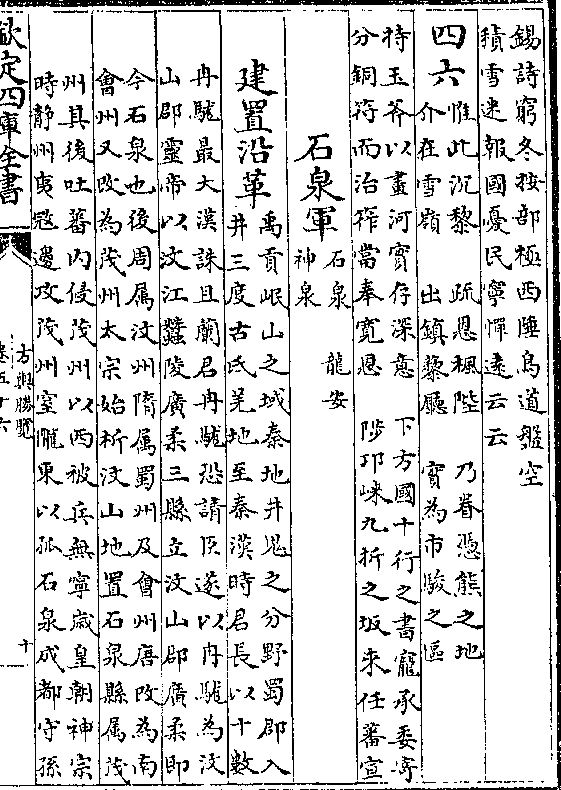 錫詩窮冬按部極西陲鳥道盤空
積雪迷報國憂民寧憚遠云云
四六 惟此沉黎 疏恩楓陛 乃眷憑熊之地
介在雪嶺 出鎮黎廳 實為市駿之區
持玉斧以畫河實存深意 下方國十行之書寵承委寄
分銅符而治筰當奉寛恩 陟邛崍九折之坂来任蕃宣
石泉軍 石泉 龍安
神泉
建置沿革 禹貢岷山之域秦地井鬼之分野蜀郡入
井三度古氐羌地至秦漢時君長以十數
冉駹最大漢誅且蘭君冉駹恐請臣遂以冉駹為汶
山郡靈帝以汶江蠶陵廣柔三縣立汶山郡廣柔即
今石泉也後周属汶州隋属蜀州及會州唐改為南
會州又改為茂州太宗始析汶山地置石泉縣属茂
州其後吐蕃内侵茂州以西被兵無寧歳皇朝神宗
時静州夷冦邊攻茂州窒隴東以孤石泉成都守孫
欽定四庫全書
方輿勝覽
卷五十六
十